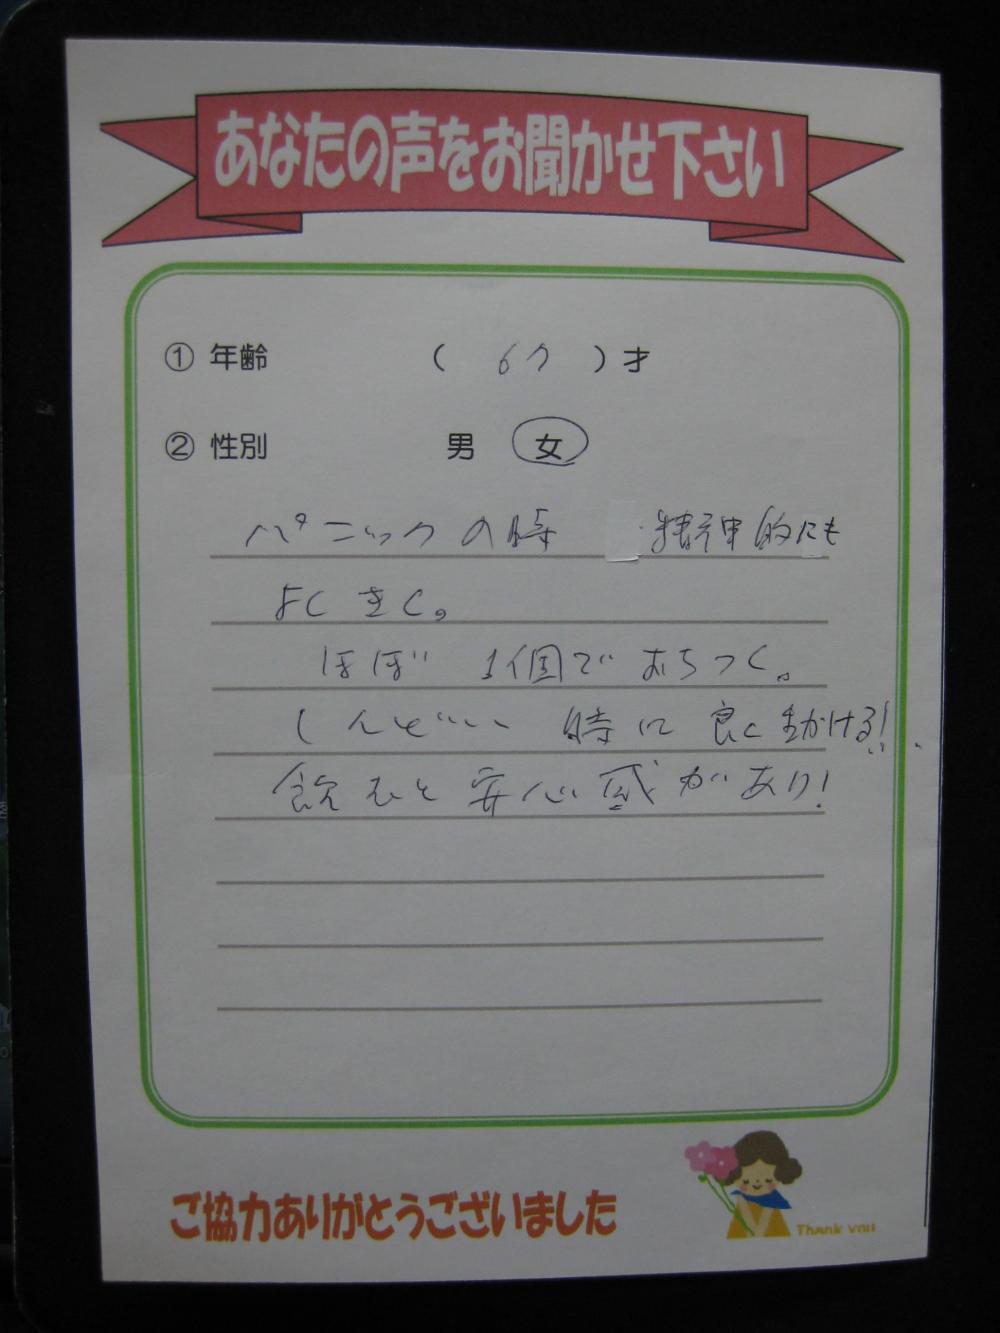 あなたの声をお聞かせ下さい
① 年齢 ( 67 ) 才
② 性別 男 女
パニックの時 精神的にも
よくきく。
ほぼ 1個でおちつく。
しんどいい 時に 良く動ける!
飲むと安心感があり!
ご協力ありがとうございました
Thank you